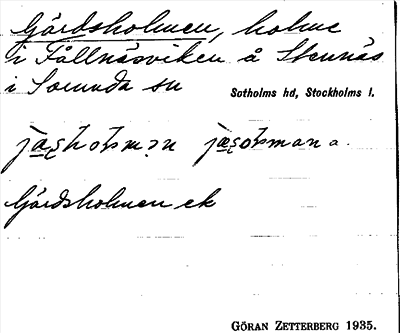 Gärdsholmen, holme
i Fållnäsviken å Stennäs
i Sorunda sn
Sotholms hd, Stockholms l.
Gärdsholmen ek
GÖRAN ZETTERBERG 1935.